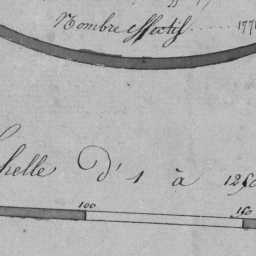 Nombre effectif ..... 177
helle d'1 à 1250
100 150